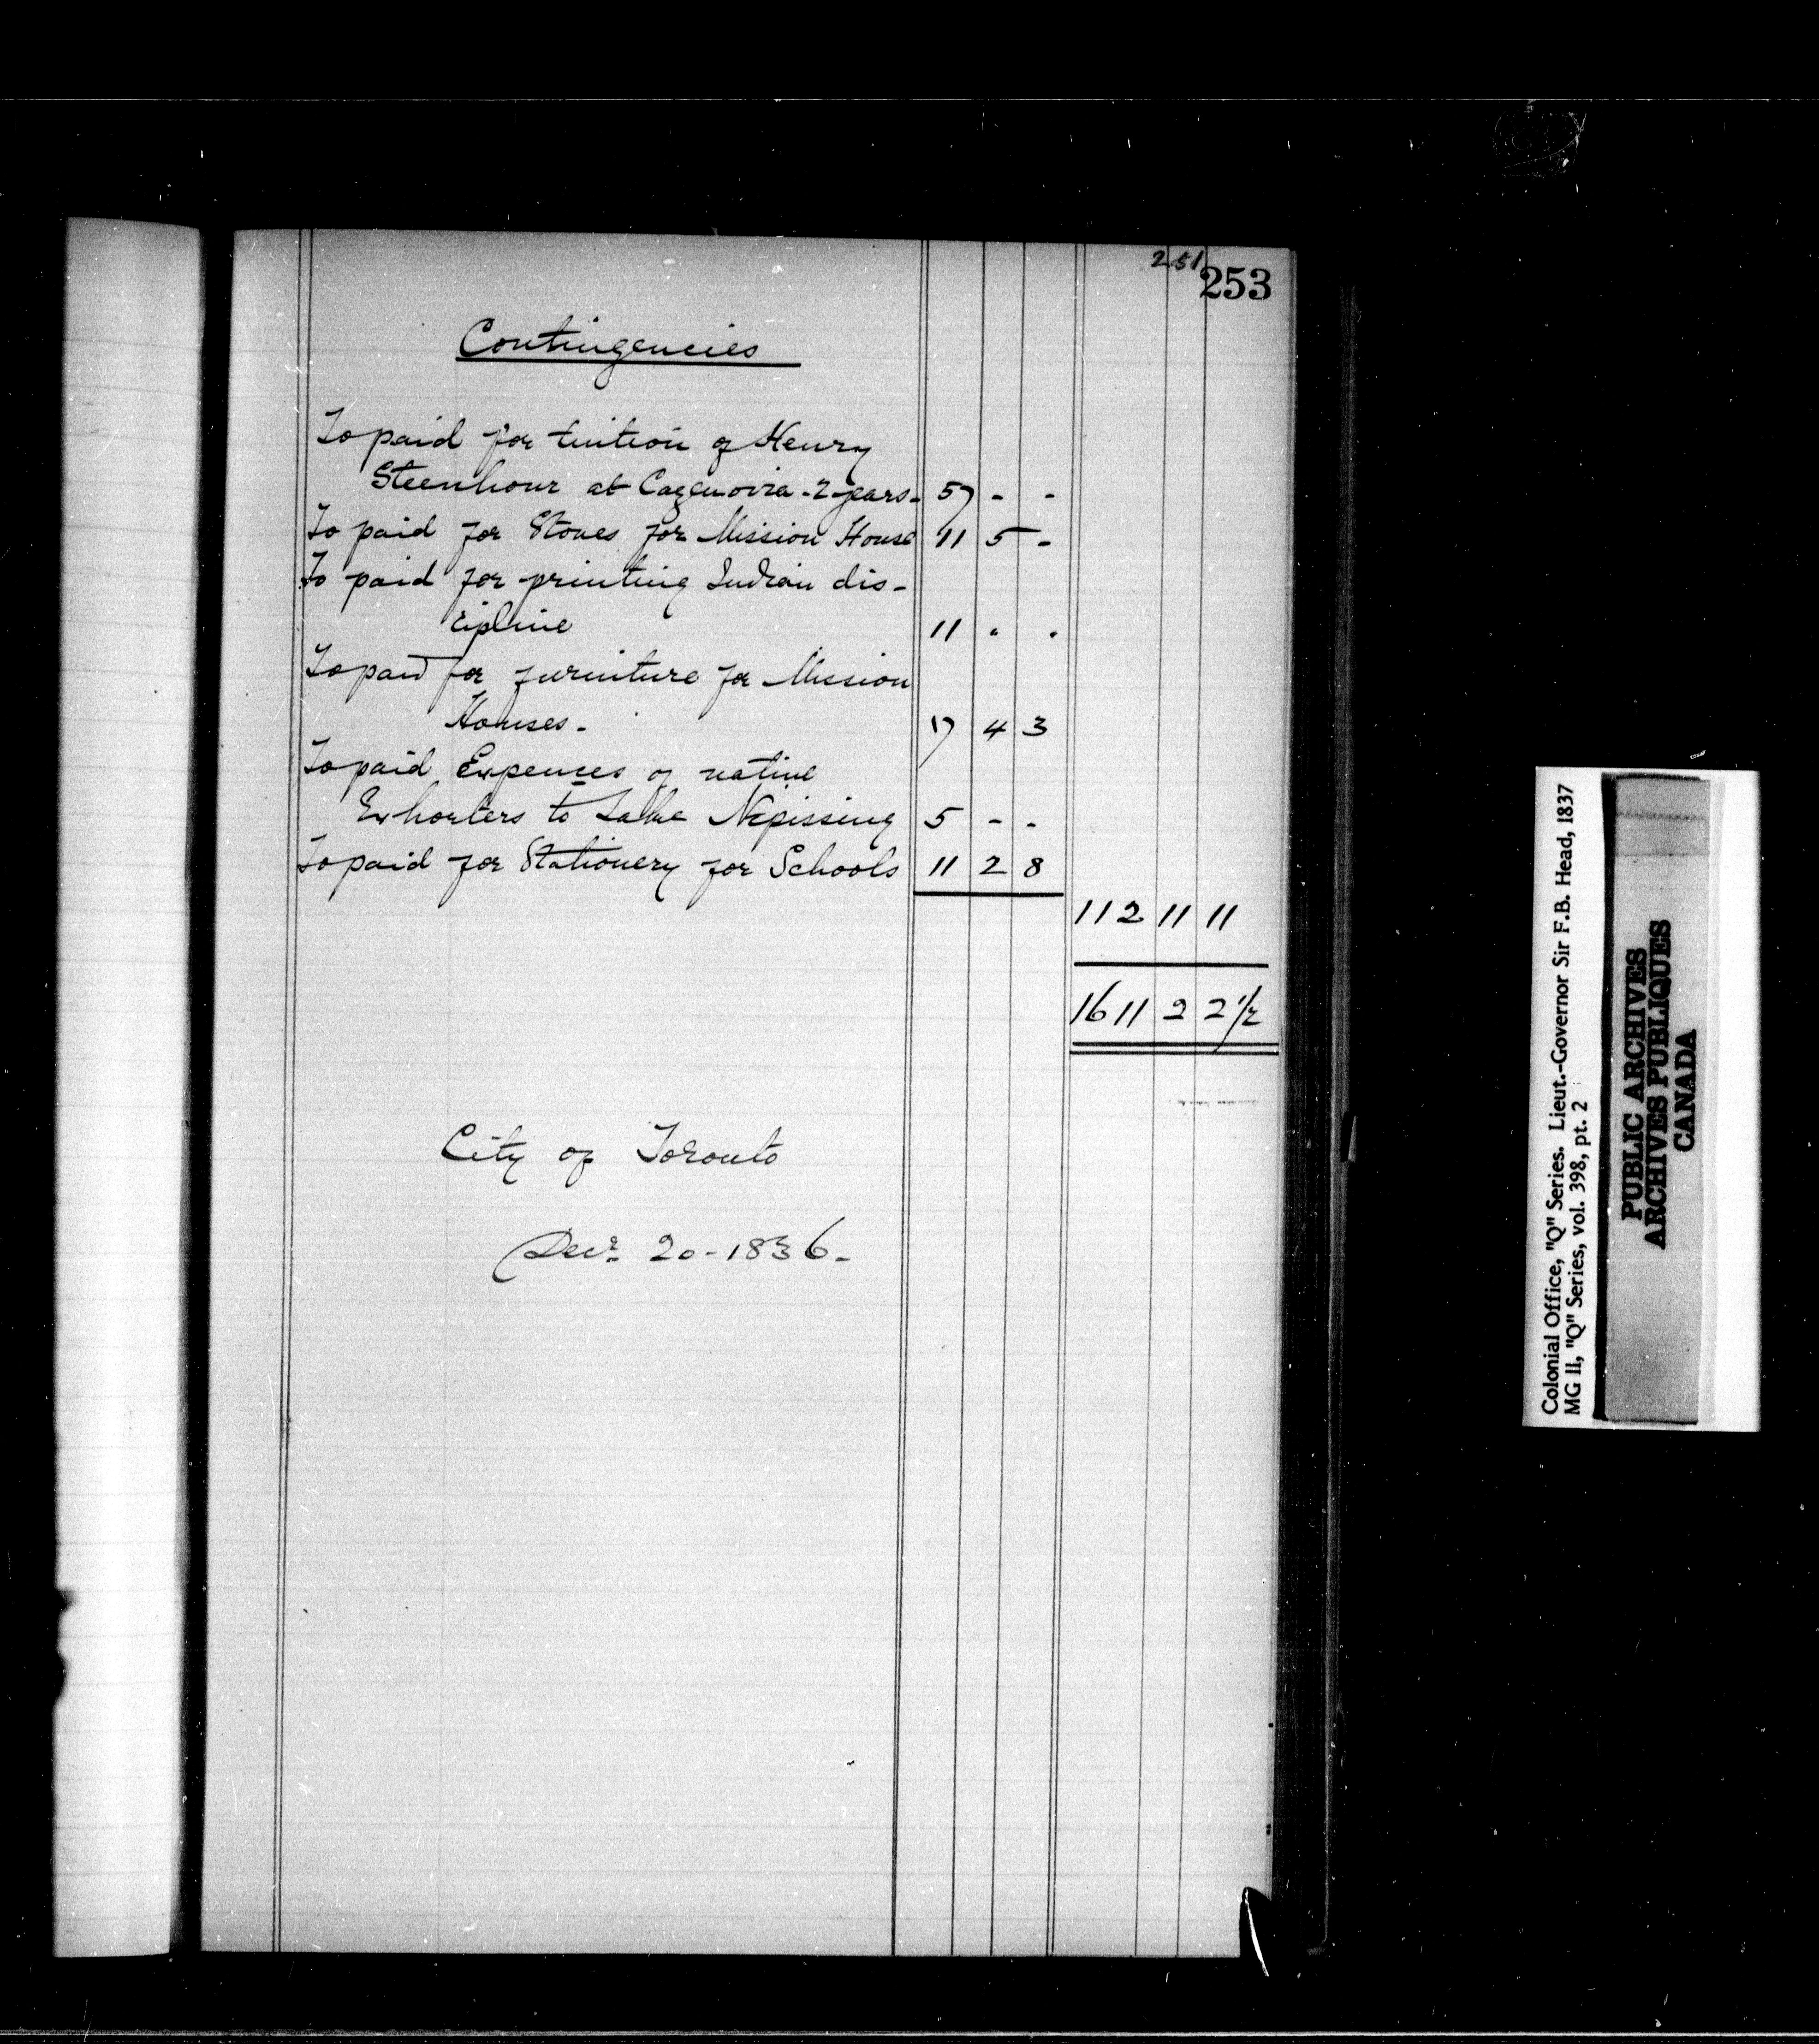 251
253
Contingencies
To paid for tuition of Henry
Steenhour at Cazenovia - 2 years - 57 - -
To paid for Stoves for Mission House 11 5 -
To paid for printing Indian dis-
cipline 11 . .
To paid for furniture for Mission
Houses - 17 4 3
To paid Expenses of native
Exhorters to Lake Nepissing 5 - -
To paid for Stationery for Schools 11 2 8
112 11 11
1611 2 2 1/2
City of Toronto
Decr. 20 - 1836 -
Colonial Office, "Q" Series. Lieut.-Governor Sir F.B. Head, 1837
MG 11, "Q" Series, vol. 398, pt. 2
PUBLIC ARCHIVES
ARCHIVES PUBLIQUES
CANADA